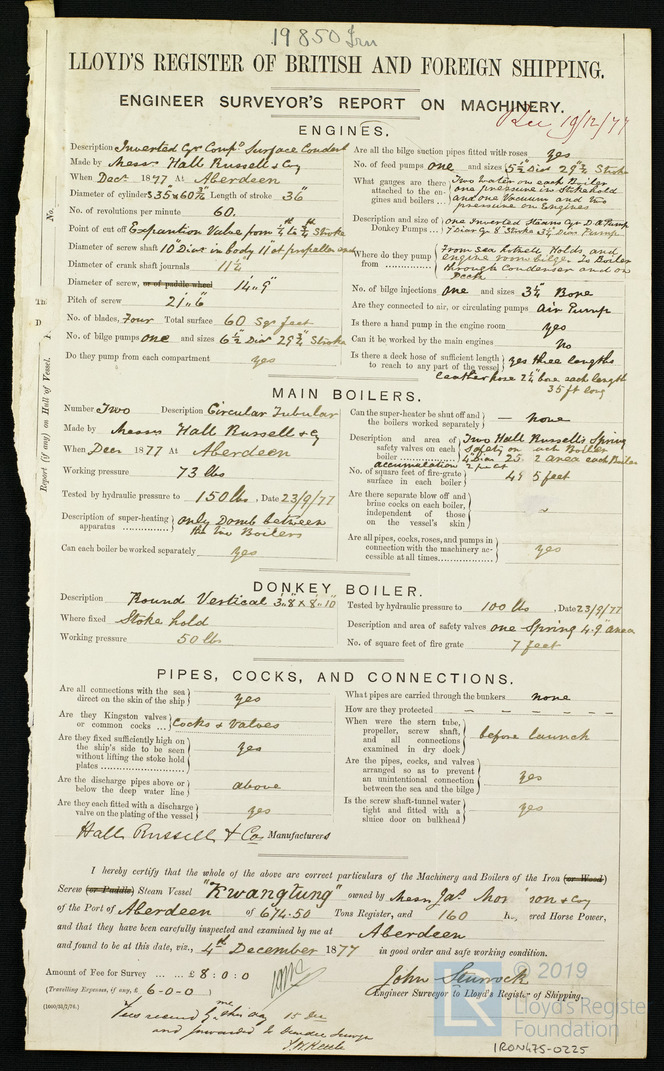 19850 Irn
LLOYD'S REGISTER OF BRITISH AND FOREIGN SHIPPING.
ENGINEER SURVEYOR'S REPORT ON MACHINERY.
Rec 19/12/77
ENGINES.
Description Inverted Cyr Compd Surface Condens
Made by Messrs Hall Russell & Coy
When Decr 1877 At Aberdeen
Diameter of cylinders 35" x 60¾" Length of stroke 36"
No. of revolutions per minute 60.
Point of cut off Expantion Valve from ¼th to ¾th Stroke
Diameter of screw shaft 10" Diar in body 11" at propeller end
Diameter of crank shaft journals 11¼
Diameter of screw, or of paddle wheel 14' " 9"
Pitch of screw 21 " 6
No. of blades, Four Total surface 60 Sqr feet
No. of bilge pumps one and sizes 6½ Diar 29¾ Stroke
Do they pump from each compartment yes
Are all the bilge suction pipes fitted with roses yes
No. of feed pumps one and sizes 5½ Diar 29¾ Stroke
What gauges are there attached to the engines and boilers ... Two Water on each Boiler
one pressure in Stokehold
and one Vacuum and two
pressure on Engines
Description and size of Donkey Pumps ... one Inverted Steam Cyr D.A. Pump
7 Diar Cyr 8" Stroke 3¾ Diar Pump
Where do they pump from ............ From sea hotwell Holds and
engine room bilge. To Boiler
through Condenser and on
Deck
No. of bilge injections one and sizes 3¼ Bore
Are they connected to air, or circulating pumps air Pump
Is there a hand pump in the engine room yes
Can it be worked by the main engines No
Is there a deck hose of sufficient length to reach to any part of the vessel yes three lengths
leather hose 2¼ bore each length
35 ft long
Report (if any) on Hull of Vessel. No.
MAIN BOILERS.
Number Two Description Circular Tubular
Made by Messrs Hall Russell & Cy
When Decr 1877 At Aberdeen
Working pressure 73 lbs
Tested by hydraulic pressure to 150 lbs, Date 23/9/77
Description of super-heating apparatus ............ only Domb between
the two Boilers
Can each boiler be worked separately yes
Can the super-heater be shut off and the boilers worked separately — none
Description and area of safety valves on each boiler ............ Two Hall Russell's Spring
Safety on each Boiler
4" Diar 25. 2 area each Boiler
accumulation 2 pr ct
No. of square feet of fire-grate surface in each boiler 49 5 feet
Are there separate blow off and brine cocks on each boiler, independent of those on the vessel's skin
Are all pipes, cocks, roses, and pumps in connection with the machinery accessible at all times yes
DONKEY BOILER.
Description Round Vertical 3' " 8 x 8' " 10"
Where fixed Stoke hold
Working pressure 50 lbs
Tested by hydraulic pressure to 100 lbs, Date 23/9/77
Description and area of safety valves one Spring 4.9" area
No. of square feet of fire grate 7 feet
PIPES, COCKS, AND CONNECTIONS.
Are all connections with the sea direct on the skin of the ship yes
Are they Kingston valves or common cocks ... Cocks & Valves
Are they fixed sufficiently high on the ship's side to be seen without lifting the stoke hold plates yes
Are the discharge pipes above or below the deep water line above
Are they each fitted with a discharge valve on the plating of the vessel yes
What pipes are carried through the bunkers none
How are they protected — — — — —
When were the stern tube, propeller, screw shaft, and all connections examined in dry dock before launch
Are the pipes, cocks, and valves arranged so as to prevent an unintentional connection between the sea and the bilge yes
Is the screw shaft-tunnel water tight and fitted with a sluice door on bulkhead yes
Hall Russell & Co Manufacturers
I hereby certify that the whole of the above are correct particulars of the Machinery and Boilers of the Iron (or Wood)
Screw (or Paddle) Steam Vessel "Kwangtung" owned by Messrs Jas. Mor son & Coy
of the Port of Aberdeen of 674.50 Tons Register, and 160 H ered Horse Power,
and that they have been carefully inspected and examined by me at Aberdeen
and found to be at this date, viz., 4th December 1877 in good order and safe working condition.
Amount of Fee for Survey ... ... £ 8:0:0
(Travelling Expenses, if any, £ 6-0-0 )
John Sturrock
Engineer Surveyor to Lloyd's Register of Shipping.
(1000/25/7/76.)
Fees received by me this day 15 Dec
and forwarded to Dundee Survyr
IRON475-0225
© 2019
LR
Lloyd's Register
Foundation